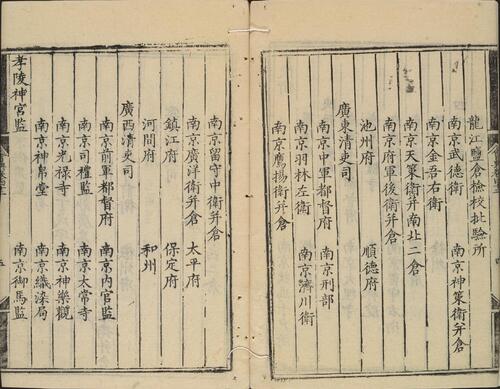 龍江鹽倉檢校批驗所
南京武德衛 南京神策衛并倉
南京金吾右衛
南京天策衛并南北二倉
南京府軍後衛并倉
池州府 順德府
廣東清吏司
南京中軍都督府 南京刑部
南京羽林左衛 南京濟川衛
南京鷹揚衛并倉
南京留守中衛并倉
南京廣洋衛并倉 太平府
鎮江府 保定府
河間府 和州
廣西清吏司
南京前軍都督府 南京內官監
南京司禮監 南京太常寺
南京光祿寺 南京神樂觀
南京神帛堂 南京織染局
孝陵神宮監 南京御馬監